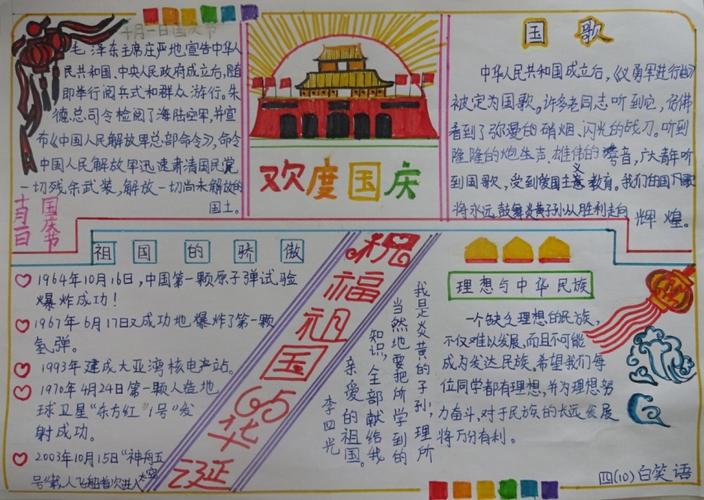 十月一日国庆节
毛泽东主席庄严地宣告中华人
民共和国,中央人民政府成立后,随
即举行阅兵式和群众游行。朱
德总司令检阅了海陆空军,并宣
布《中国人民解放军总部命令》,命令
中国人民解放军迅速肃清国民党
一切残余武装,解放一切尚未解放的
国土。
十月一日
国庆节
欢度国庆
国歌
中华人民共和国成立后,《义勇军进行曲》
被定为国歌。许多老同志听到它,仿佛
看到了弥漫的硝烟、闪光的战刀。听到
隆隆的炮生声,雄伟的
音,广大青年听
到国歌,受到爱国主义教育。我们在国
歌
将永远鼓舞炎黄子孙从胜利走向
辉煌。
祖国的骄傲
1964年10月16日,中国第一颗原子弹试验
爆炸成功!
1967年6月17日又成功地爆炸了第一颗
氢弹。
1993年建成大亚湾核电产站。
1970年4月24日第一颗人造地
球卫星"东方红1号"发
射成功。
2003年10月15日"神舟五
号"载人飞船首次进入太空
祝福祖国65华诞
我是炎黄的子孙,理所
当然地要把所学到的
知识,全部献给我
亲爱的祖国。
李四光
理想与中华民族
一个缺乏理想的民族,
不仅难以发展,而且不可能
成为发达民族。希望我们每
位同学都有理想,并为理想努
力奋斗,对于民族的长远发展
将万分有利。
四(10)白笑语